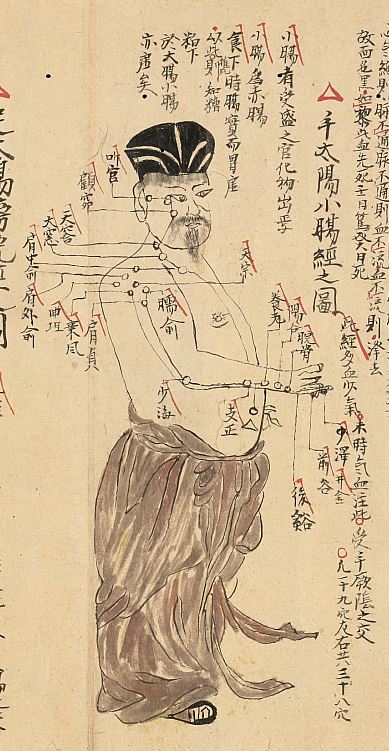 故面色黑如黎此血先死壬日篤癸日死
手太陽小腸經之圖
此經多血少氣未時氣血注此受手厥陰之交
凡一十九穴左右共三十八穴
小腸者受盛之官化物出焉
小腸為赤腸
食下時腸實而胃虛
粕下
於大腸小腸
亦虛矣
听宮
顴窌
天容
天窓
肩中俞
肩外俞
曲垣
秉風
肩貞
臑俞
天宗
少海
支正
養老
陽谷
腕骨
少澤井金
前谷
後谿